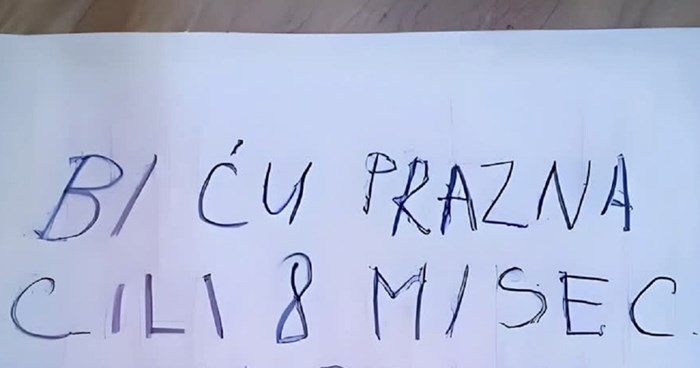 BI ĆU PRAZNA
CILI 8 MISEC.